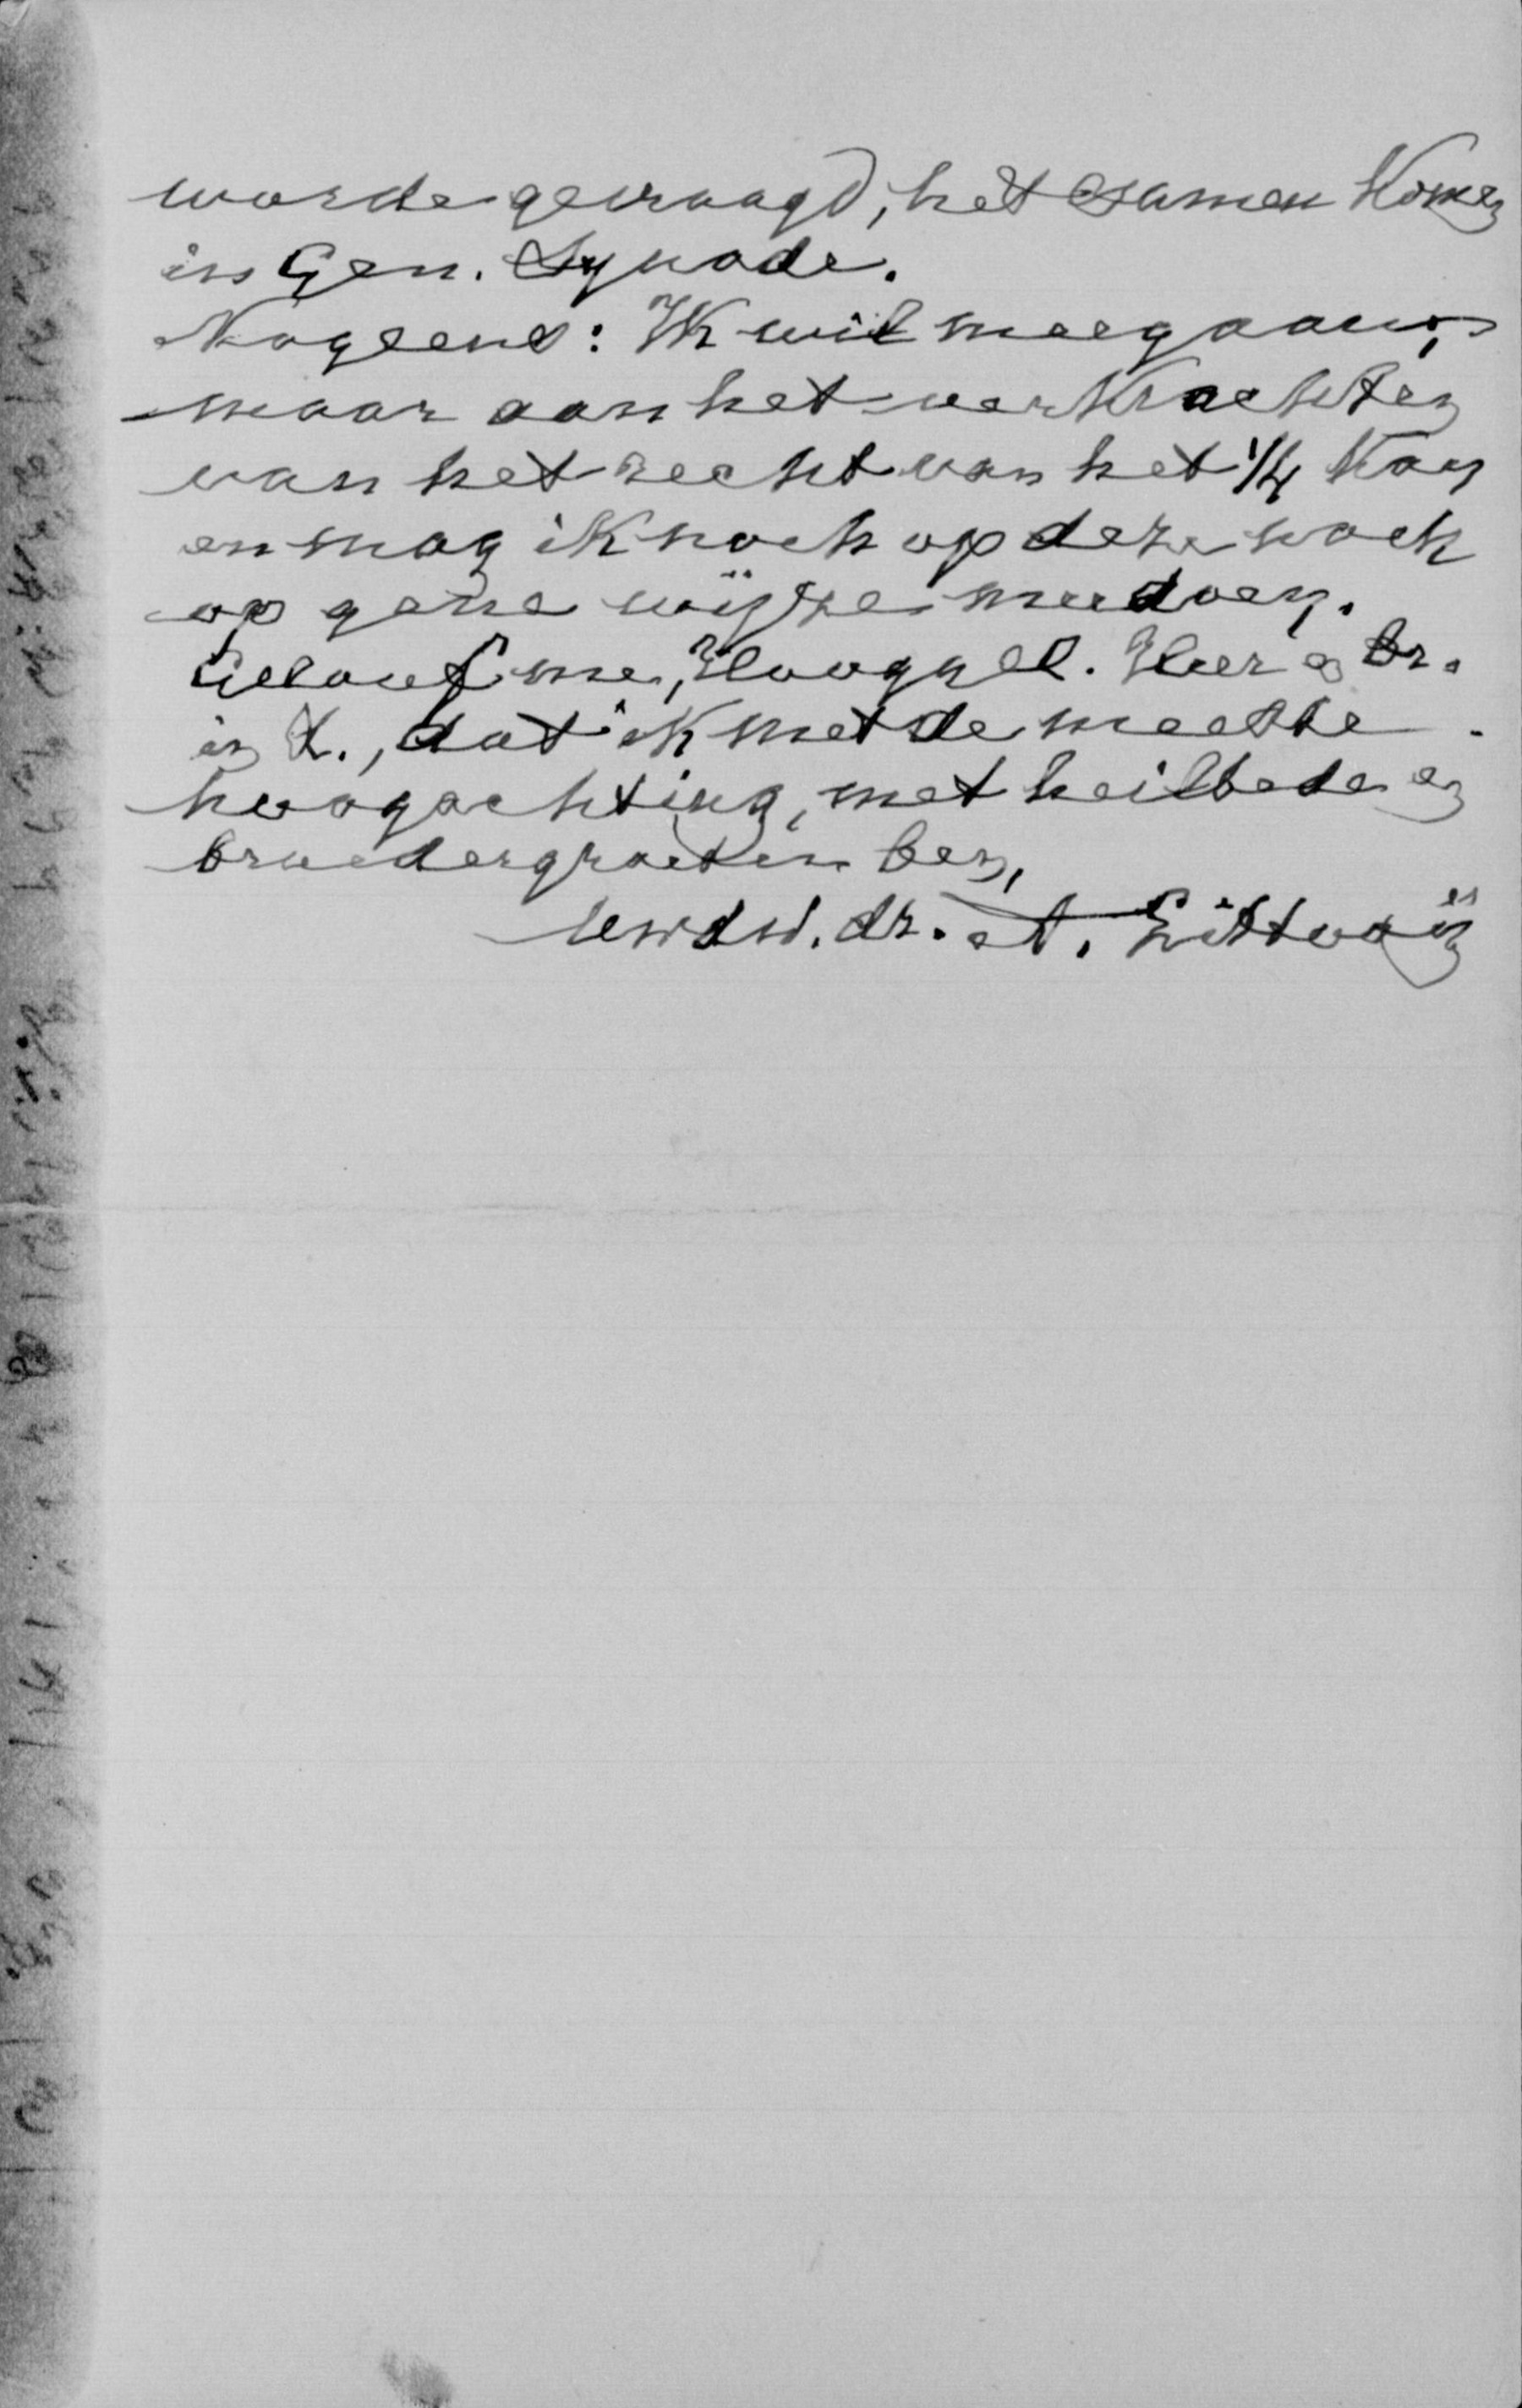 worde gevraagd, het samen komen
in Gen. Synode.
Nogeens: Ik wil meegaan,
maar aan het verkrachten
van het recht van het 1/4 kan
en mag ik noch op deze noch
op gene wijze meedoen.
Geloof me, Hooggel. Heer en br.
in X., dat ik met de meeste
hoogachting, met heilbede en
broedergroeten ben,
Uwdw. dr. A. Littooij